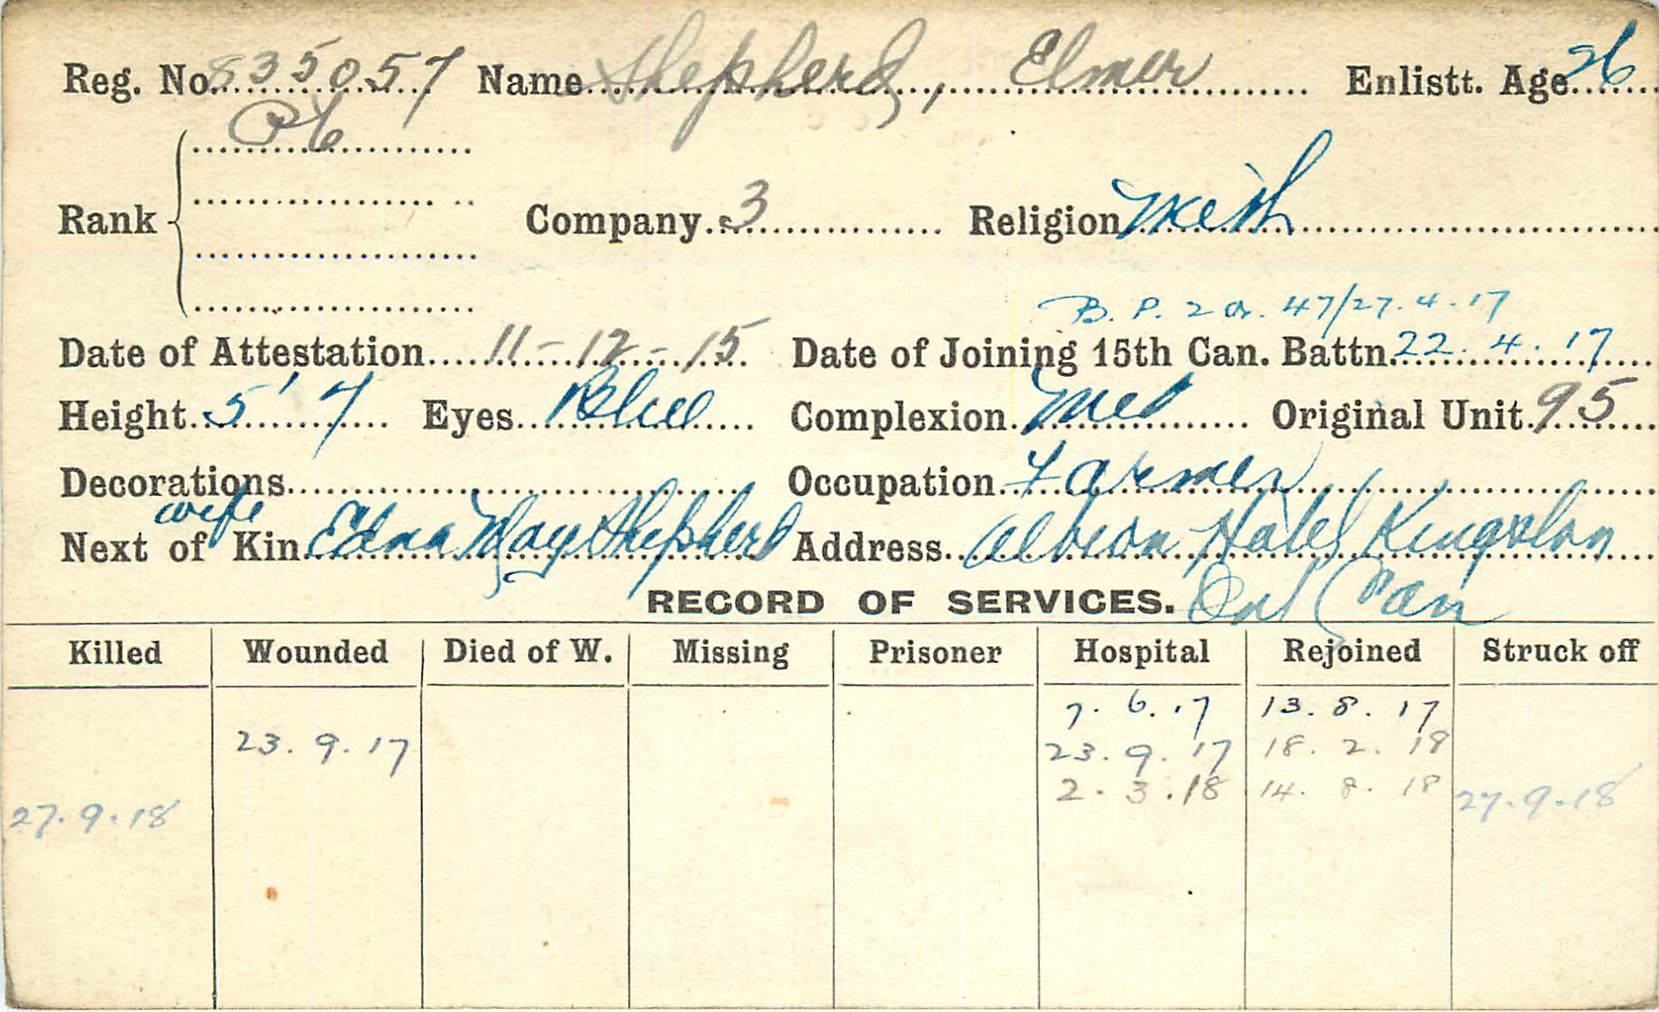 Reg. No. 835057 Name Shepherd, Elmer Enlistt. Age 26
Pte
Rank Company 3 Religion Meth
B. P. 2 Or. 47/27.4.17
Date of Attestation 11-12-15 Date of Joining 15th Can. Battn. 22.4.17
Height 5' 7 Eyes Blue Complexion Med Original Unit 95
Decorations Occupation Farmer
wife
Next of Kin Edna May Shepherd Address Albion Hotel Kingston
RECORD OF SERVICES. Ont Can
Killed Wounded Died of W. Missing Prisoner Hospital Rejoined Struck off
7.6.17 13.8.17
23.9.17 23.9.17 18.2.18
27.9.18 2.3.18 14.8.18 27.9.18